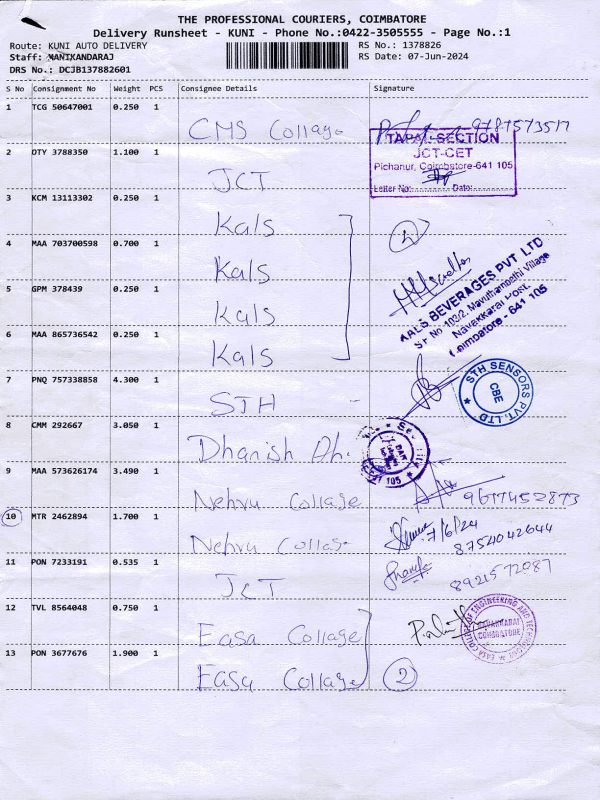 THE PROFESSIONAL COURIERS, COIMBATORE
Delivery Runsheet - KUNI - Phone No.:0422-3505555 - Page No.:1
Route: KUNI AUTO DELIVERY
RS No.: 1378826
Staff: MANIKANDARAJ
RS Date: 07-Jun-2024
DRS No.: DCJB137882601
S No Consignment No Weight PCS Consignee Details Signature
1 TCG 50647001 0.250 1
CMS Collage
TAPAL SECTION
JCT-CET
Pichanur, Coimbatore-641 105
Letter No:............Date:............
2 OTY 3788350 1.100 1
JCT
3 KCM 13113302 0.250 1
Kals
4 MAA 703700598 0.700 1
Kals
KALS BEVERAGES PVT LTD
Sr No. 103/2, Mavuthampathi Village
Navakkarai Post,
Coimbatore - 641 105
5 GPM 378439 0.250 1
Kals
6 MAA 865736542 0.250 1
Kals
7 PNQ 757338858 4.300 1
STH
STH SENSORS PVT. LTD
CBE
8 CMM 292667 3.050 1
Dhanish Ah.
9 MAA 573626174 3.490 1
Nehru Collage
10 MTR 2462894 1.700 1
Nehru Collage
7/6/24
8754042644
11 PON 7233191 0.535 1
JCT
12 TVL 8564048 0.750 1
Easa Collage
EASA COLLEGE OF ENGINEERING AND TECHNOLOGY
NAVAKKARAI
COIMBATORE
13 PON 3677676 1.900 1
Easa Collage
2